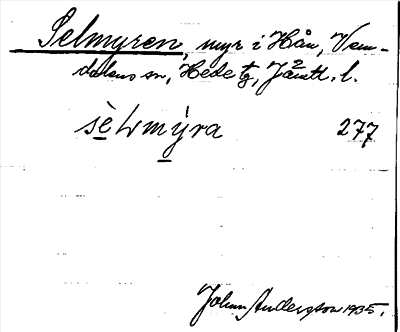 Selmyren, myr i Hån, Vem-
dalens sn, Hede tg, Jämtl. l.
sèLmýra 277
Johan Andersson 1935.